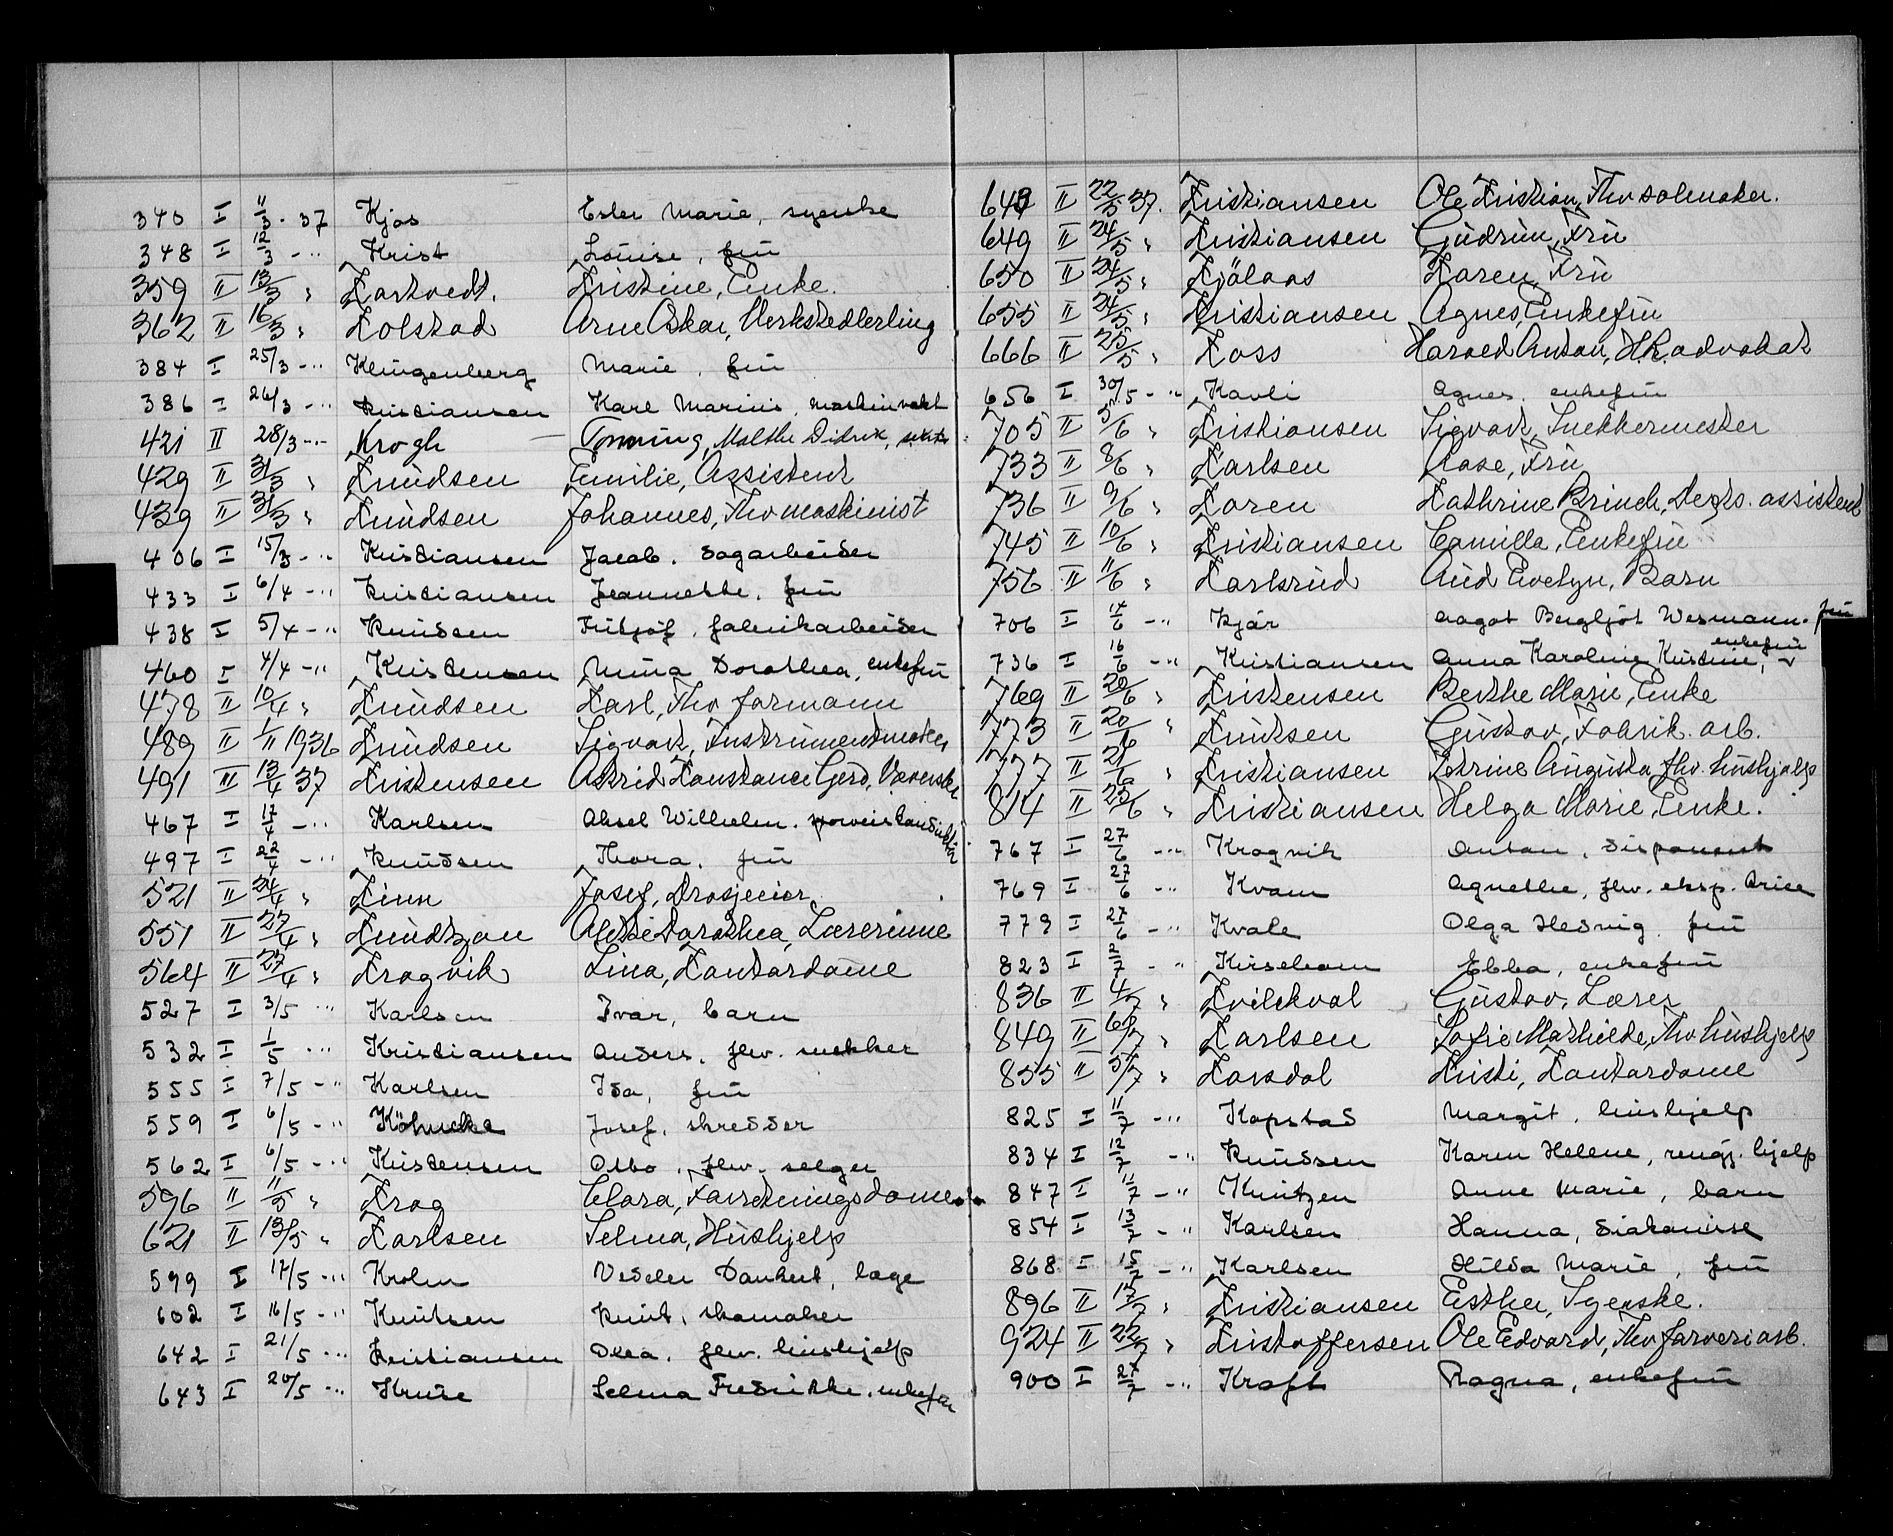 340 I 11/3 - 37 Kjos Ester Marie, syerske
348 I 12/3 - " Krist Louise, fru
359 II 13/3 " Kartvedt. Kristine, Enke.
362 II 16/3 " Kolstad Arne Oskar, Verkstedlerling
384 I 25/3 - " Klingenberg Marie, fru
386 I 26/3 - " Kristiansen Karl Marius, maskinvakt
421 II 28/3 - " Krogh — Tonning, Malthe Didrik,
429 II 31/3 " Knudsen Emilie, Assistent
439 II 31/3 " Knudsen Johannes, Fhv maskinist
406 I 15/3 - " Kristiansen Jacob, sagarbeider
433 I 6/4 - " Kristiansen Jeannette, fru
438 I 5/4 - " Knudsen Fritjof, fabrikarbeider
460 I 4/4 - " Kristensen Mina Dorothea, enkefru
478 II 10/4 " Knudsen Karl, Fhv formann
489 II 1/II 1936 Knudsen Sigvart, Instrumentmaker
491 II 13/4 37 Kristensen Astrid Konstance Gerd, Væverske
467 I 17/4 - " Karlsen Aksel Wilhelm,
497 I 22/4 - " Knudsen Thora, fru
521 II 24/4 " Kinn Josef, Drosjeeier
551 II 27/4 " Knudtzon Alette Dorothea, Lærerinne
564 II 27/4 " Kragvik Lina, Kontordame
527 I 3/5 " Karlsen Ivar, barn
532 I 1/5 - " Kristiansen Anders, fhv. snekker
555 I 7/5 - " Karlsen Ida, fru
559 I 6/5 - " Köhncke Josef, skredder
562 I 6/5 - " Kristensen Otto, fhv. selger
596 II 11/5 " Krag Clara, Forretningsdame
621 II 13/5 " Karlsen Selma, Hushjelp
599 I 14/5 - " Krohn Vedeler Dankert, læge
602 I 16/5 - " Knutsen Knut, skomaker
642 I 21/5 - " Kristiansen Olea, fhv. hushjelp
643 I 20/5 - " Kruse Selma Fredrikke, enkefru
648 II 22/5 37. Kristiansen Ole Kristian, Fhv salmaker.
649 II 24/5 " Kristiansen Gudrun, Fru
650 II 24/5 " Kjölaas Karen, Fru
655 II 24/5 " Kristiansen Agnes, Enkefru
666 II 25/5 " Koss Harald Anton, H.R. advokat
656 I 30/5 - " Kavli Agnes, enkefru
705 II 5/6 " Kristiansen Sigvart, Snekkermester
733 II 8/6 " Karlsen Aase, Fru
736 II 9/6 " Koren Kathrine Brinch, Depts. assistent
745 II 10/6 " Kristiansen Camilla, Enkefru
756 II 11/6 " Karlsrud Aud Evelyn, Barn
706 I 14/6 - " Kjär Aagot Bergljot Wesmann, fru
736 I 16/6 - " Kristiansen Anna Karoline Kristine, enkefru
769 II 20/6 " Kristensen Berthe Marie, Enke
773 II 20/6 " Knutsen Gustav, Fabrik. arb.
777 II 21/6 " Kristiansen Petrine Augusta, fhv. hushjelp
814 II 25/6 " Kristiansen Helga Marie, Enke.
767 I 27/6 - " Kragvik Anton, disponent
769 I 27/6 - " Kvam Agnethe, fhv. eksp. trise
779 I 27/6 - " Kvale Olga Hedvig, fru
823 I 2/7 - " Kirsebom Ebba, enkefru
836 II 4/7 " Kvilekval Gustav, Lærer
849 II 6/7 " Karlsen Sofie Mathilde, Fhv hushjelp
855 II 5/7 " Korsdal Kristi, Kontordame
825 I 11/7 - " Kopstad Margit, hushjelp
834 I 12/7 - " Knudsen Karen Helene, rengj. hjelp
847 I 11/7 - " Knutzen Anne Marie, barn
854 I 13/7 - " Karlsen Hanna, diakonisse
868 I 15/7 - " Karlsen Hilda Marie, fru
896 II 17/7 " Kristiansen Esther, Syerske.
924 II 22/7 " Kristoffersen Ole Edvard, Fhv farveriarb.
900 I 27/7 - " Kraft Ragna, enkefru